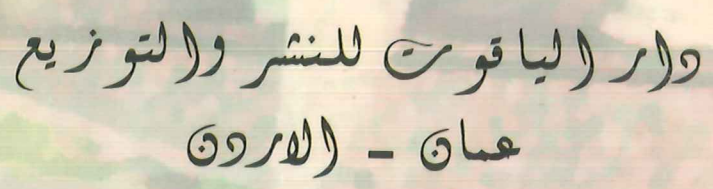 دار الياقوت للنشر والتوزيع
عمان - الاردن